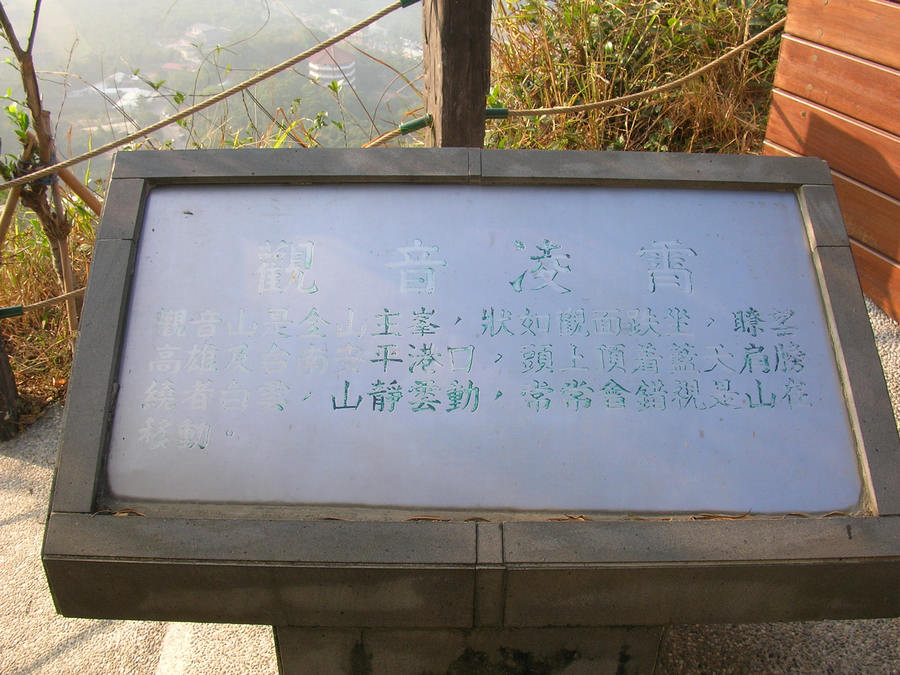 觀音凌霄
觀音山是全山主峯,狀如觀音趺坐,瞭望
高雄及台南安平港口,頭上頂著藍天肩膀
繞著白雲,山靜雲動,常常會錯視是山在
移動。